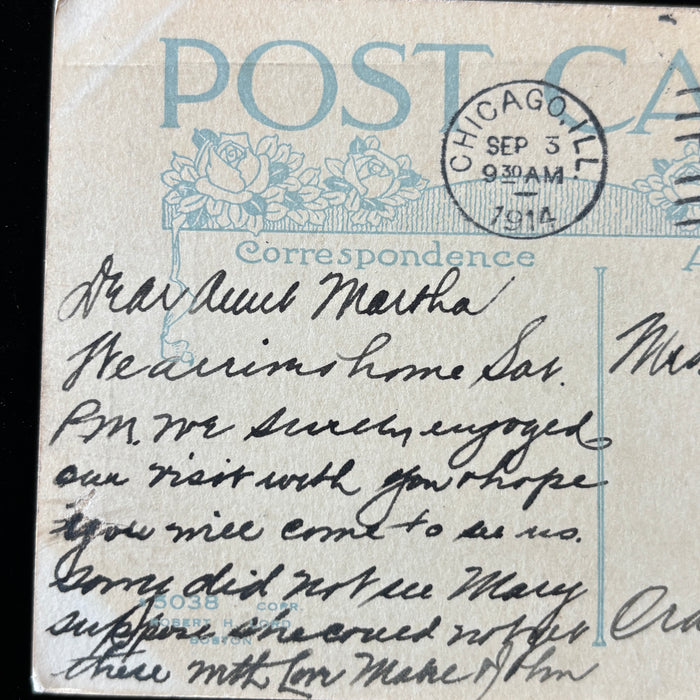 POST CA
CHICAGO, ILL.
SEP 3
9 30 AM
1914
Correspondence
A
Dear Aunt Martha
We arrived home Sat.
P.M. We surely enjoyed
our visit with you & hope
you will come to see us.
Sorry did not see Mary
she could not get
there with Love & John
Mrs
5038 CORP.
ROBERT H. LORD
BOSTON